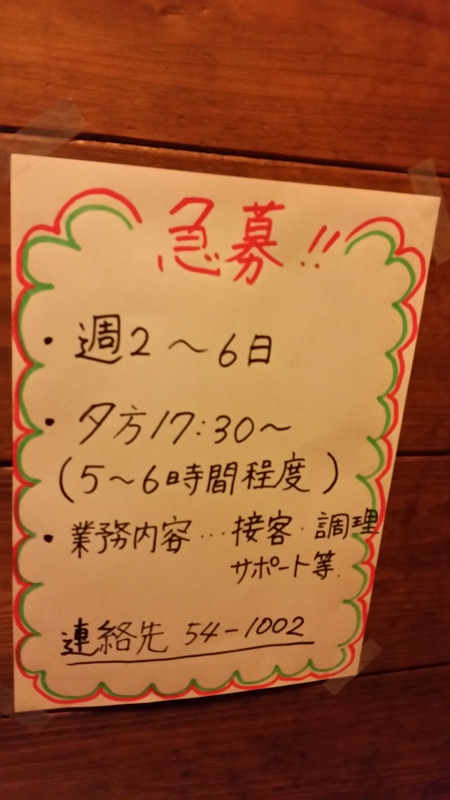 急募!!
・週2～6日
・夕方17:30～
(5～6時間程度)
・業務内容…接客・調理
サポート等.
連絡先 54-1002